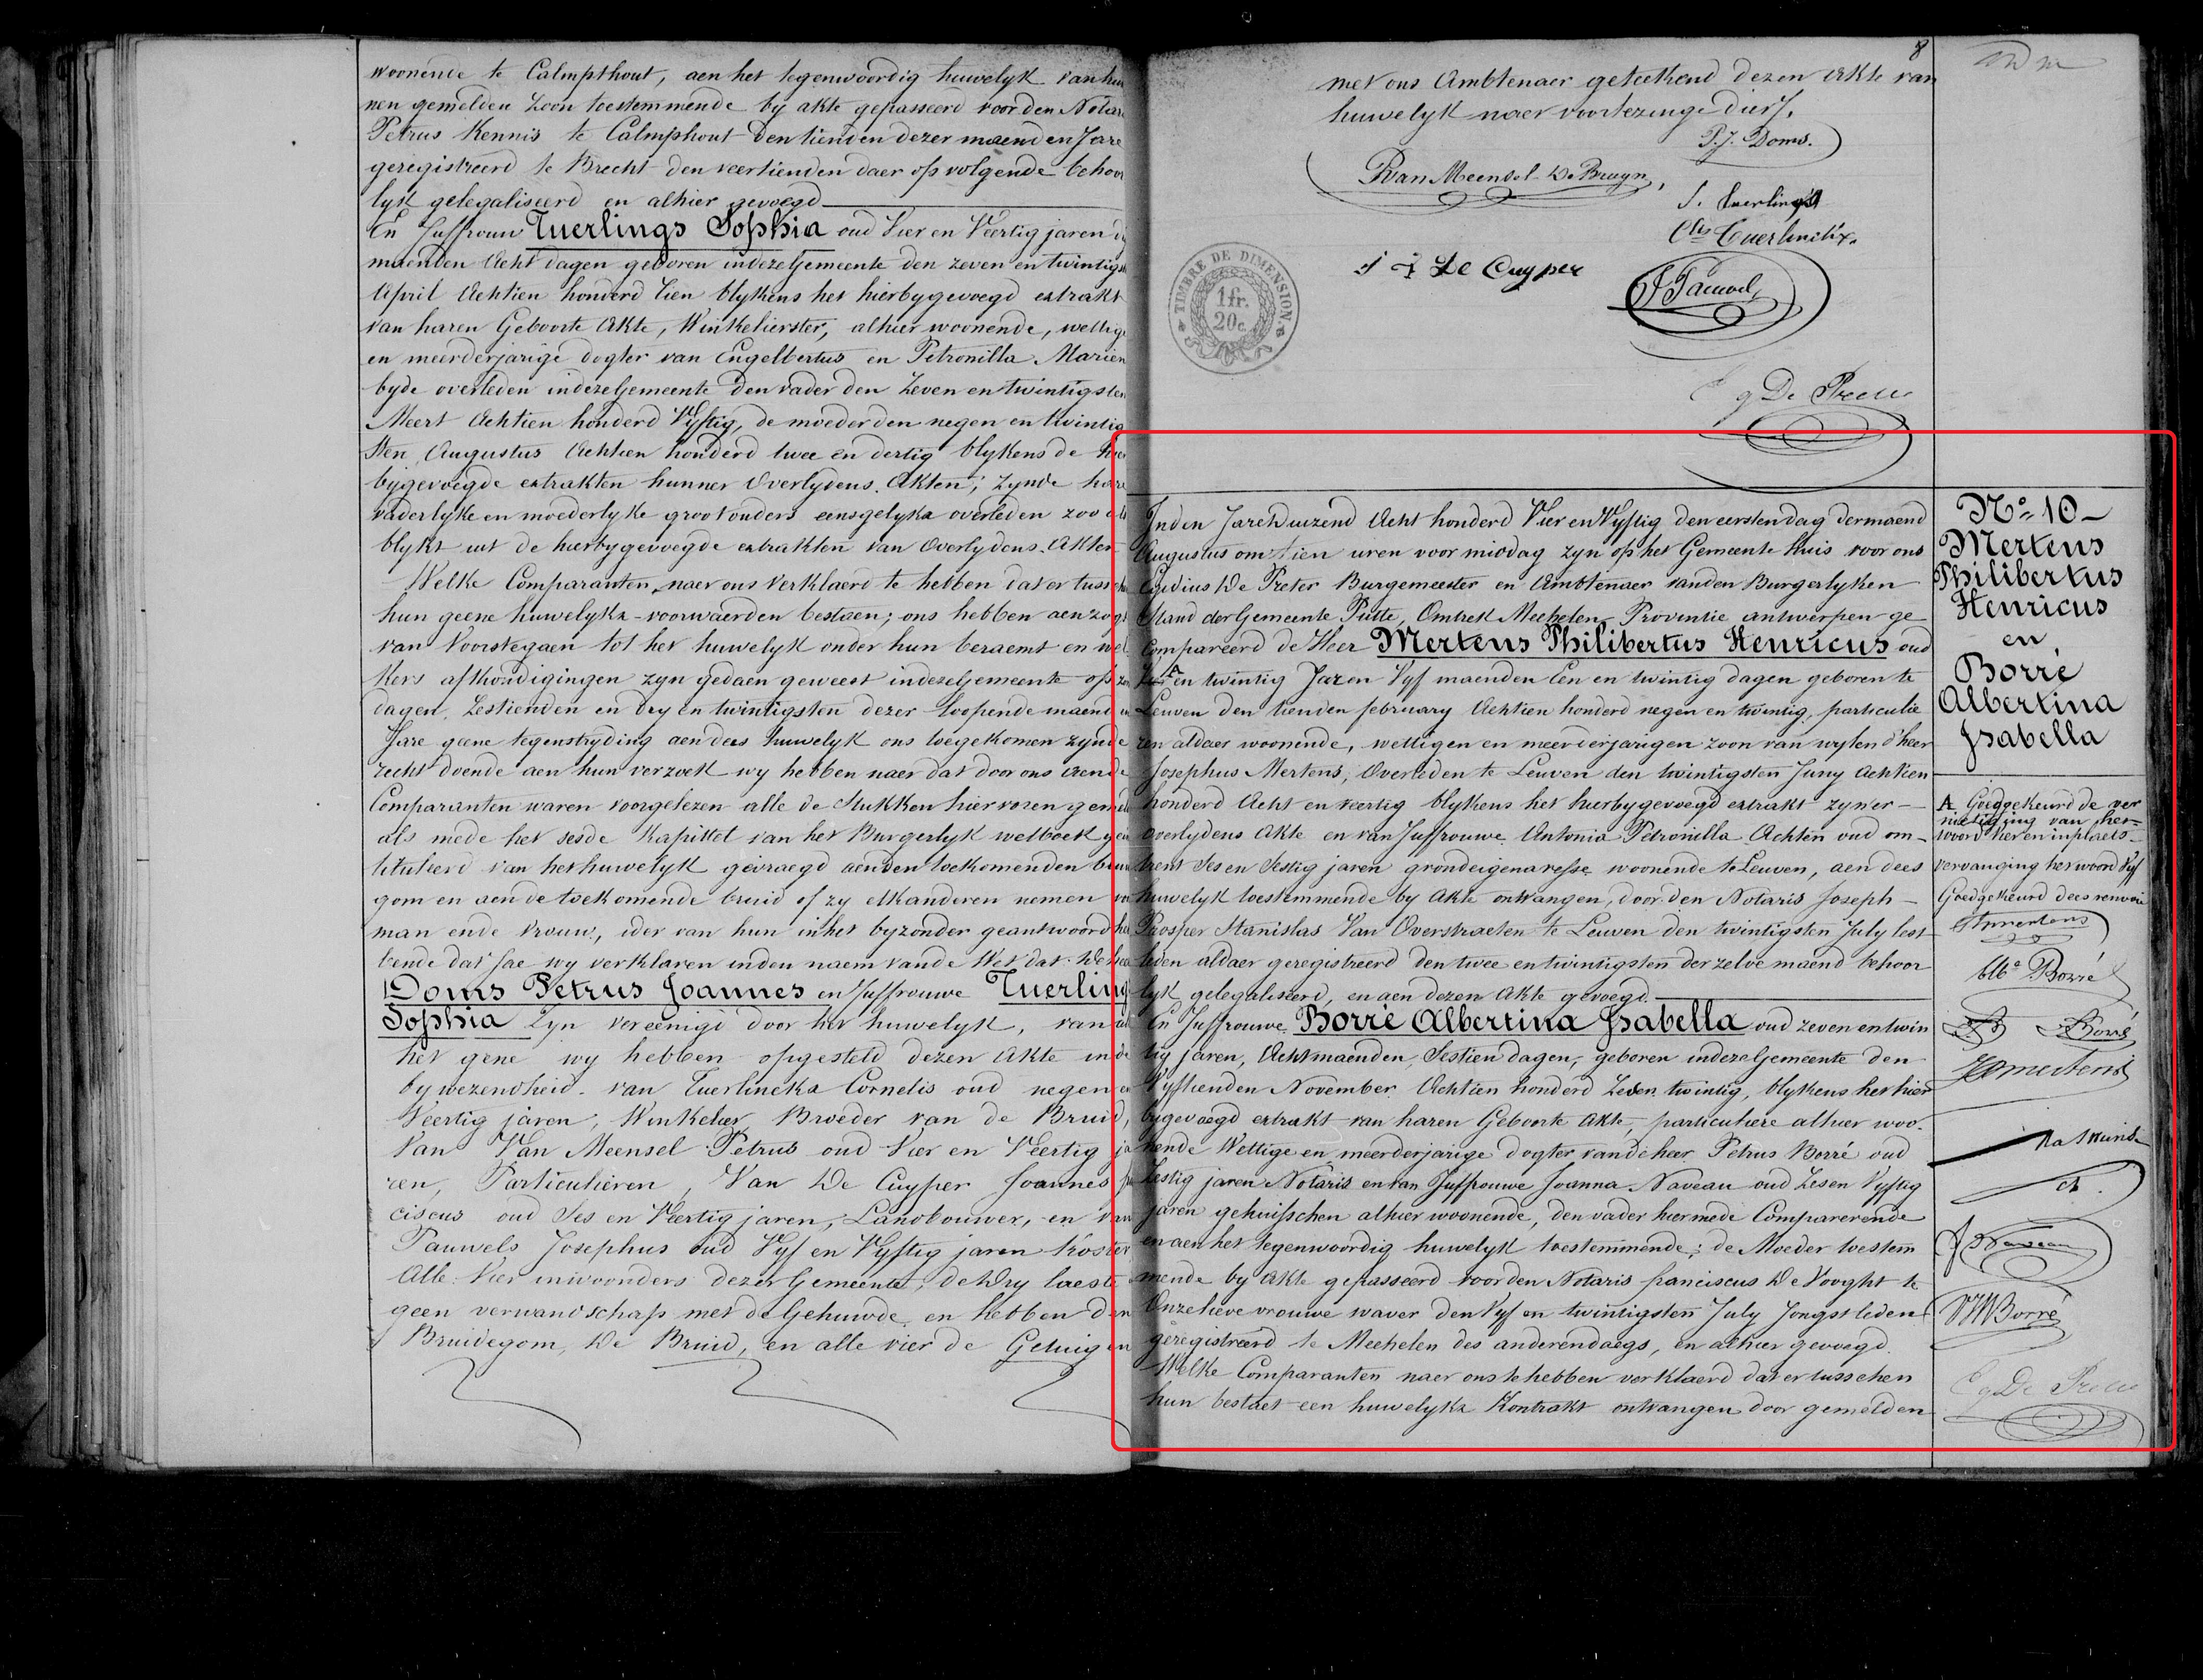 woonende te Calmpthout, aen het tegenwoordig huwelyk van hun
nen gemelden Zoon toestemmende by akte gepasseerd voor den Notar
Petrus Kennis te Calmphout den tienden dezer maend en Jare
geregistreerd te Brecht den veertienden daer op volgende behoor
lyk gelegaliseerd en alhier gevoegd
En Juffrouw Tuerlings Sophia oud Vier en Veertig jaren
maenden Acht dagen geboren indezeGemeente den zeven en twintigst
April Achtien honderd tien blykens het hierbygevoegd extrakt
van haren Geboorte Akte, Winkelierster, alhier woonende, wettige
en meerderjarige dogter van Engelbertus en Petronilla Marien
byde overleden indezeGemeente den vader den Zeven en twintigsten
Meert Achtien honderd Vyftig, de moeder den negen en twintig
sten Augustus Achtien honderd twee en dertig blykens de hier
bygevoegde extrakten hunner Overlydens Akten; zynde hare
vaderlyke en moederlyke grootouders eensgelyks overleden zoo als
blykt uit de hierbygevoegde extrakten van Overlydens Akten
Welke Comparanten naer ons verklaerd te hebben dat er tusschen
hun geene huwelyks-voorwaerden bestaen; ons hebben aenzogt
van Voorstegaen tot het huwelyk onder hun beraemt en wel
kers afkondigingen zyn gedaen geweest indezeGemeente op zon
dagen Zestienden en dry en twintigsten dezer loopende maend en
Jare geene tegenstryding aen dees huwelyk ons toegekomen zynde
recht doende aen hun verzoek wy hebben naer dat door ons aende
Comparanten waren voorgelezen alle de stukken hier voren gemeld
als mede het sesde Kapittel van het Burgerlyk wetboek gein
tituleerd van het huwelyk gevraegd aenden toekomenden bruide
gom en aen de toekomende bruid of zy elkanderen nemen voor
man ende vrouw, ider van hun in het byzonder geantwoord heb
bende dat Jae wy verklaren inden naem vande Wet dat
Doms Petrus Joannes en Juffrouwe Tuerling
Sophia Zyn vereenigd door het huwelyk, van al
het gene wy hebben opgesteld dezen Akte inde
bywezendheid van Tuerlincks Cornelis oud negen en
Veertig jaren, Winkelier, Broeder van de Bruid,
Van Van Meensel Petrus oud Vier en Veertig ja
ren, Particulieren, Van De Cuyper Joannes fran
ciscus oud Ses en Veertig jaren, Landbouwer, en van
Pauwels Josephus oud Vyf en Vyftig jaren koster
Alle Vier inwoonders dezer Gemeente, de Dry laeste
geen verwandschap met de Gehuwde en hebben den
Bruidegom, De Bruid, en alle vier de Getuigen
8
met ons Ambtenaer geteekend dezen Akte van
huwelyk naer voorlezinge dies.
P.J. Doms.
PVan Meensel-De Bruyn
S. Tuerlings
Cls Tuerlinckx.
J F De Cuyper
J Pauwels
TIMBRE DE DIMENSION
1fr.
20c.
Eg De Preter
Inden Jare Duizend Acht honderd Vier en Vyftig den eersten dag der maend
Augustus om tien uren voor middag zyn op het Gemeente huis voor ons
Egidius De Preter Burgemeester en Ambtenaer vanden Burgerlyken
Stand der Gemeente Putte, Omtrek Mechelen Provintie antwerpen ge
Compareerd de Heer Mertens Philibertus Henricus oud
A en twintig Jaren Vyf maenden Een en twintig dagen geboren te
Leuven den tienden february Achtien honderd negen en twintig, particulie
ren aldaer woonende, wettigen en meerderjarigen zoon van wylen d'heer
Josephus Mertens, Overleden te Leuven den twintigsten Juny Achtien
honderd Acht en veertig blykens het hierbygevoegd extrakt zyner
Overlydens Akte en van Juffrouwe Antonia Petronilla Achten oud om
trent Ses en Sestig jaren grondeigenaresse woonende te Leuven, aen dees
huwelyk toestemmende by Akte ontvangen, door den Notaris Joseph
Prosper Stanislas Van Overstraeten te Leuven den twintigsten July lest
leden aldaer geregistreerd den twee en twintigsten der zelve maend behoor
lyk gelegaliseerd, en aen dezen Akte gevoegd.
En Juffrouwe Borré Albertina Isabella oud zeven en twin
tig jaren, Acht maenden, Sestien dagen, geboren indezeGemeente den
Vyftienden November Achtien honderd Zeven twintig, blykens het hier
bygevoegd extrakt van haren Geboorte Akte, particuliere alhier woo
nende Wettige en meerderjarige dogter van d'heer Petrus Borré oud
Zestig jaren Notaris en van Juffrouwe Joanna Naveau oud Zes en Vyftig
jaren gehuisschen alhier woonende, den vader hiermede Comparerende
en aen het tegenwoordig huwelyk toestemmende; de Moeder toestem
mende by Akte gepasseerd voor den Notaris franciscus De Vooght te
Onzelieve vrouwe waver den Vyf en twintigsten July Jongstleden
geregistreerd te Mechelen des anderendaegs, en alhier gevoegd.
Welke Comparanten naer ons te hebben verklaerd dat er tusschen
hun bestaet een huwelyks Kontrakt ontvangen door gemelden
No 10
Mertens
Philibertus
Henricus
en
Borré
Albertina
Isabella
A Goedgekeurd de ver
nietiging van het
woord Vier en in plaets
vervanging het woord Vyf
Goedgekeurd dees renvoi
Mertens
Aba Borré
Borré
Mertens
Naveau
Borré
Eg De Preter